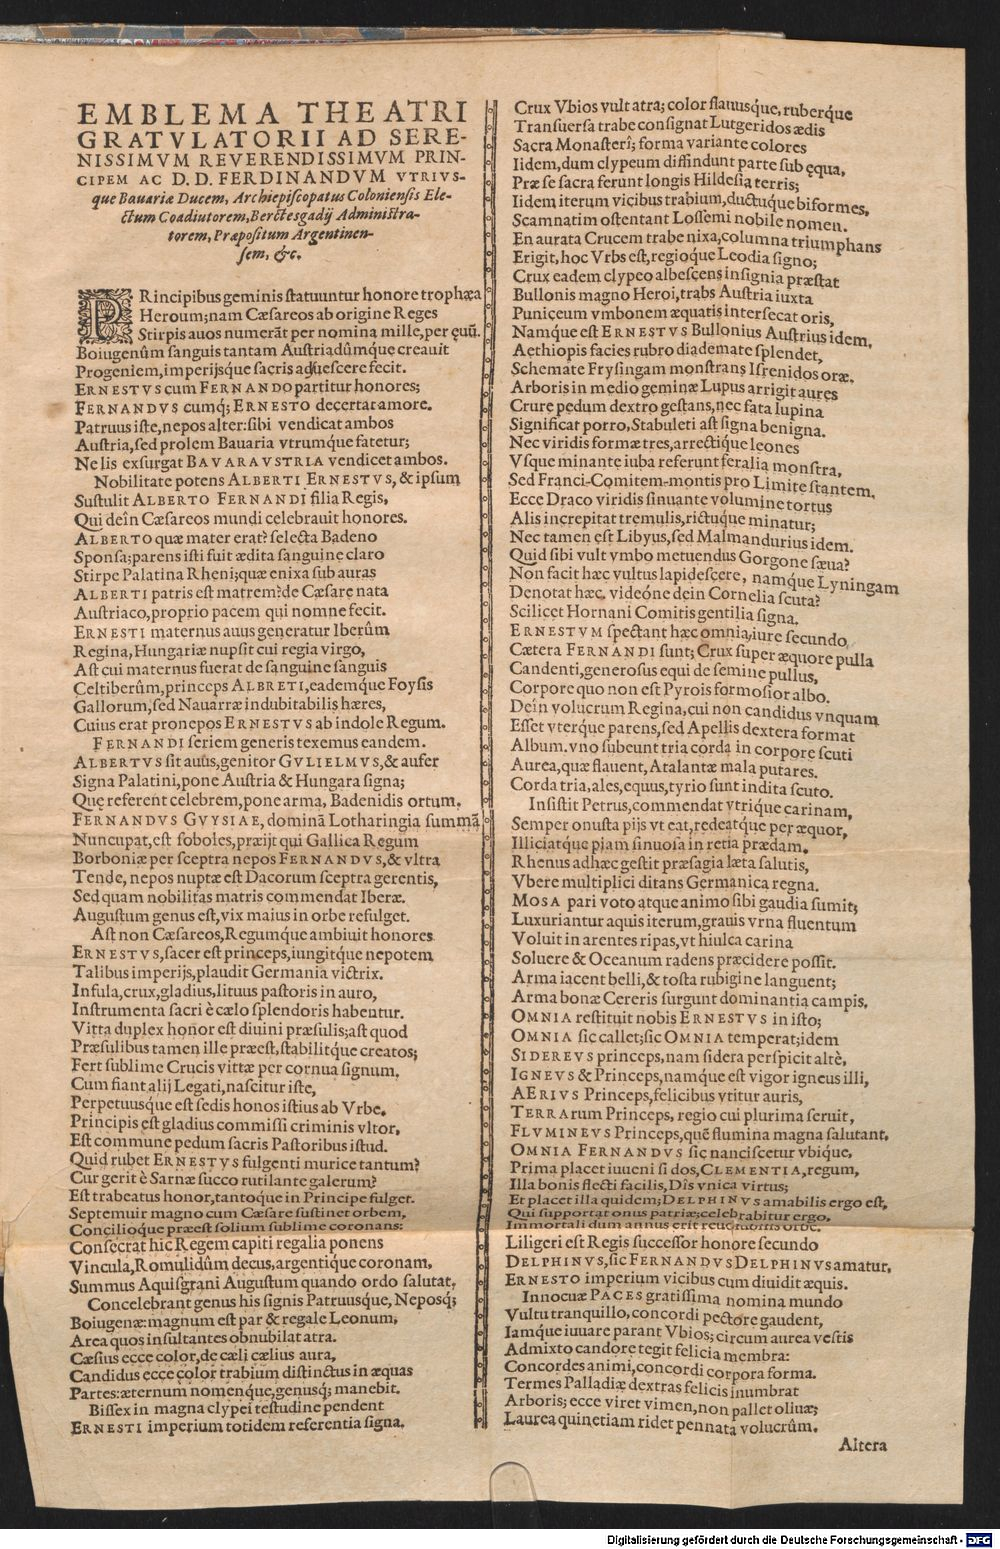 EMBLEMA THEATRI
GRATVLATORII AD SERE-
NISSIMVM REVERENDISSIMVM PRIN-
CIPEM AC D. D. FERDINANDVM VTRIVS-
que Bavariæ Ducem, Archiepiscopatus Coloniensis Ele-
ctum Coadiutorem, Berctesgadij Administra-
torem, Præpositum Argentinen-
sem, &c.
PRincipibus geminis statuuntur honore trophæa
Heroum; nam Cæsareos ab origine Reges
Stirpis avos numerãt per nomina mille, per ęuũ.
Boiugenûm sanguis tantam Austriadûmque creauit
Progeniem, imperijsque sacris adsuescere fecit.
ERNESTVS cum FERNANDO partitur honores;
FERNANDVS cumq; ERNESTO decertat amore.
Patruus iste, nepos alter: sibi vendicat ambos
Austria, sed prolem Bauaria vtrumque fatetur;
Ne lis exsurgat BAVARAVSTRIA vendicet ambos.
Nobilitate potens ALBERTI ERNESTVS, & ipsum
Sustulit ALBERTO FERNANDI filia Regis,
Qui dein Cæsareos mundi celebrauit honores.
ALBERTO quæ mater erat? selecta Badeno
Sponsa; parens isti fuit ædita sanguine claro
Stirpe Palatina Rheni; quæ enixa sub auras
ALBERTI patris est matrem? de Cæsare nata
Austriaco, proprio pacem qui nomne fecit.
ERNESTI maternus auus generatur Iberûm
Regina, Hungariæ nupsit cui regia virgo,
Ast cui maternus fuerat de sanguine sanguis
Celtiberûm, princeps ALBRETI, eademque Foysis
Gallorum, sed Nauarræ indubitabilis hæres,
Cuius erat pronepos ERNESTVS ab indole Regum.
FERNANDI seriem generis texemus eandem.
ALBERTVS sit auus, genitor GVLIELMVS, & aufer
Signa Palatini, pone Austria & Hungara signa;
Que referent celebrem, pone arma, Badenidis ortum.
FERNANDVS GVYSIAE, dominã Lotharingia summã
Nuncupat, est soboles, præijt qui Gallica Regum
Borboniæ per sceptra nepos FERNANDVS, & vltra
Tende, nepos nuptæ est Dacorum sceptra gerentis,
Sed quam nobilitas matris commendat Iberæ.
Augustum genus est, vix maius in orbe refulget.
Ast non Cæsareos, Regumque ambiuit honores
ERNESTVS, sacer est princeps, iungitque nepotem
Talibus imperijs, plaudit Germania victrix.
Infula, crux, gladius, lituus pastoris in auro,
Instrumenta sacri è cælo splendoris habentur.
Vitta duplex honor est diuini præsulis; ast quod
Præsulibus tamen ille præest, stabilitque creatos;
Fert sublime Crucis vittæ per cornua signum,
Cum fiant alij Legati, nascitur iste,
Perpetuusque est sedis honos istius ab Vrbe.
Principis est gladius commissi criminis vltor,
Est commune pedum sacris Pastoribus istud.
Quid rubet ERNESTVS fulgenti murice tantum?
Cur gerit è Sarnæ succo rutilante galerum?
Est trabeatus honor, tantoque in Principe fulget.
Septemuir magno cum Cæsare sustinet orbem,
Concilioque præest solium sublime coronans:
Consecrat hic Regem capiti regalia ponens
Vincula, Romulidûm decus, argentique coronam,
Summus Aquisgrani Augustum quando ordo salutat.
Concelebrant genus his signis Patruusque, Neposq;
Boiugenæ: magnum est par & regale Leonum,
Area quos insultantes obnubilat atra.
Cæsius ecce color, de cæli cælius aura,
Candidus ecce color trabium distinctus in æquas
Partes: æternum nomenque, genusq; manebit.
Bissex in magna clypei testudine pendent
ERNESTI imperium totidem referentia signa.
Crux Vbios vult atra; color flauusque, ruberque
Transuersa trabe consignat Lutgeridos ædis
Sacra Monasterî; forma variante colores
Iidem, dum clypeum diffindunt parte sub ęqua,
Præ se sacra ferunt longis Hildesia terris;
Iidem iterum vicibus trabium, ductuque biformes,
Scamnatim ostentant Lossemi nobile nomen.
En aurata Crucem trabe nixa, columna triumphans
Erigit, hoc Vrbs est, regioque Leodia signo;
Crux eadem clypeo albescens insignia præstat
Bullonis magno Heroi, trabs Austria iuxta
Puniceum vmbonem æquatis intersecat oris,
Namque est ERNESTVS Bullonius Austrius idem.
Aethiopis facies rubro diademate splendet,
Schemate Frysingam monstrans Isrenidos oræ.
Arboris in medio geminæ Lupus arrigit aures
Crure pedum dextro gestans, nec fata lupina
Significat porro, Stabuleti ast signa benigna.
Nec viridis formæ tres, arrectique leones
Vsque minante iuba referunt feralia monstra,
Sed Franci-Comitem-montis pro Limite stantem.
Ecce Draco viridis sinuante volumine tortus
Alis increpitat tremulis, rictuque minatur;
Nec tamen est Libyus, sed Malmandurius idem.
Quid sibi vult vmbo metuendus Gorgone sæua?
Non facit hæc vultus lapidescere, namque Lyningam
Denotat hæc. videóne dein Cornelia scuta?
Scilicet Hornani Comitis gentilia signa.
ERNESTVM spectant hæc omnia, iure secundo
Cætera FERNANDI sunt; Crux super æquore pulla
Candenti, generosus equi de semine pullus,
Corpore quo non est Pyrois formosior albo.
Dein volucrum Regina, cui non candidus vnquam
Esset vterque parens, sed Apellis dextera format
Album. vno subeunt tria corda in corpore scuti
Aurea, quæ flauent, Atalantæ mala putares.
Corda tria, ales, equus, tyrio sunt indita scuto.
Insistit Petrus, commendat vtrique carinam,
Semper onusta pijs vt eat, redeatque per æquor,
Illiciatque piam sinuosa in retia prædam.
Rhenus adhæc gestit præsagia læta salutis,
Vbere multiplici ditans Germanica regna.
MOSA pari voto atque animo sibi gaudia sumit;
Luxuriantur aquis iterum, grauis vrna fluentum
Voluit in arentes ripas, vt hiulca carina
Soluere & Oceanum radens præcidere possit.
Arma iacent belli, & tosta rubigine languent;
Arma bonæ Cereris surgunt dominantia campis.
OMNIA restituit nobis ERNESTVS in isto;
OMNIA sic callet; sic OMNIA temperat; idem
SIDEREVS princeps, nam sidera perspicit altè,
IGNEVS & Princeps, namque est vigor igneus illi,
AERIVS Princeps, felicibus vtitur auris,
TERRArum Princeps, regio cui plurima seruit,
FLVMINEVS Princeps, quẽ flumina magna salutant.
OMNIA FERNANDVS sic nanciscetur vbique,
Prima placet iuueni si dos, CLEMENTIA, regum,
Illa bonis flecti facilis, Dîs vnica virtus;
Et placet illa quidem; DELPHINVS amabilis ergo est,
Qui supportat onus patriæ; celebrabitur ergo,
Immortali dum annus erit
Liligeri est Regis successor honore secundo
DELPHINVS, sic FERNANDVS DELPHINVS amatur,
ERNESTO imperium vicibus cum diuidit æquis.
Innocuæ PACES gratissima nomina mundo
Vultu tranquillo, concordi pectore gaudent,
Iamque iuuare parant Vbios; circum aurea vestis
Admixto candore tegit felicia membra:
Concordes animi, concordi corpora forma.
Termes Palladiæ dextras felicis inumbrat
Arboris; ecce viret vimen, non pallet oliuæ;
Laurea quinetiam ridet pennata volucrûm.
Altera
Digitalisierung gefördert durch die Deutsche Forschungsgemeinschaft - DFG